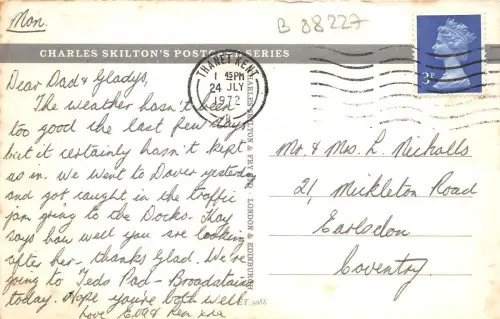 Mon.
B 88227
CHARLES SKILTON'S POSTCARD SERIES
THANET KENT
1 45PM
24 JLY
1972
Dear Dad & Gladys,
The weather hasn't been
too good the last few days
but it certainly hasn't kept
us in. We went to Dover yesterday
and got caught in the traffic
jam going to the Docks. May
says how well you are looking
after her - thanks Glad. We're
going to Teds Pad - Broadstairs
today. Hope you're both well
Love Eva & Ken xxx
CHARLES SKILTON & FRY LTD LONDON & EDINBURGH
Mr. & Mrs. L. Nicholls
21, Mickleton Road
Earlsdon
Coventry.